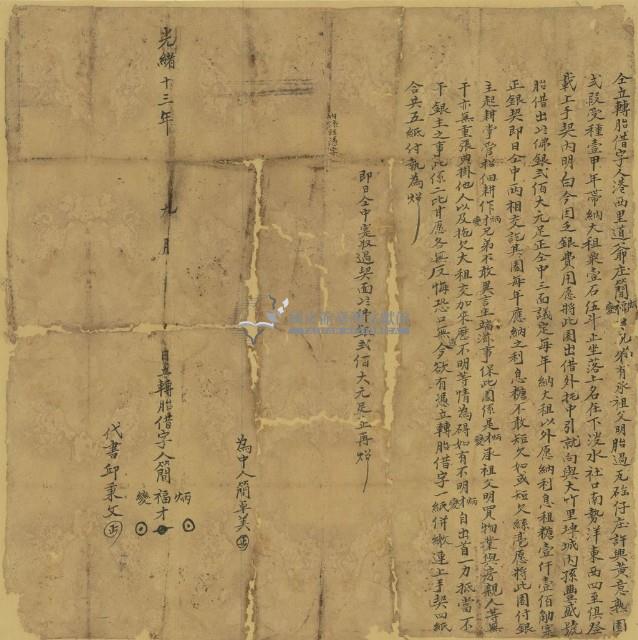 仝立轉胎借字人港西里道爺庄簡炳福才燮兄弟有承祖父明胎過瓦磘仔庄許興黃意熟園
弍段受種壹甲年帶納大租粟壹石伍斗正坐落土名在下淡水社口南勢洋東西四至俱登
載上手契內明白今因乏銀費用應將此園出借外托中引就向與大竹里埤城內孫豐盛號
胎借出頭佛銀弍佰大元足正仝中三面議定每年納大租以外應納利息租糖壹仟壹佰觔
正銀契即日仝中兩相交訖其園每年應納之利息糖不敢短欠如或短欠絲毫應將此園付銀
主起耕掌管招佃耕作炳福才燮兄弟不敢異言生端滋事保此園係是炳福才燮承祖父明買物業與房親人等無
干亦無重張典掛他人以及拖欠大租交加來歷不明等情為碍如有不明炳福才燮自出首一力抵當不
干銀主之事此係二比甘愿各無反悔恐口無今欲有憑立轉胎借字一紙併繳連上手契四紙
合共五紙付執為炤
即日仝中實收過契面頭佛銀弍佰大元足正再炤
為中人簡卓美
光緒十三年 九月 日立轉胎借字人簡炳福才燮
代書邱秉文